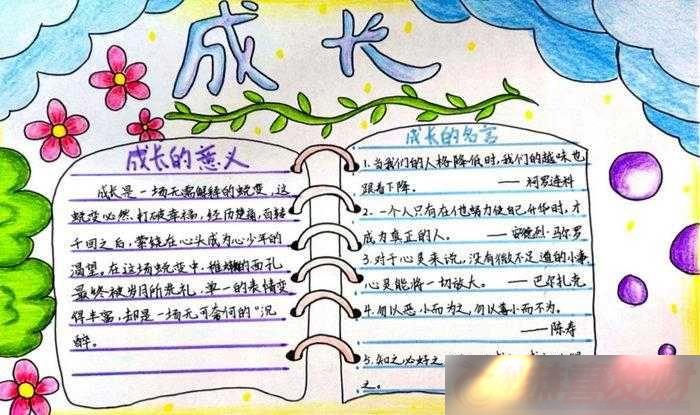 成长
成长的意义
成长是一场无需解释的蜕变，这
蜕变必然，打破幸福，经历楚痛，百转
千回之后，萦绕在心头成为心少年的
渴望，在这场蜕变中，稚嫩的面孔
最终被岁月所洗礼，单一的表情变
得丰富，却是一场无可奈何的“沉
醉。
成长的名言
1.当我们的人格降低时，我们的趣味也
跟着下降。——柯罗连科
2.一个人只有在他努力使自己升华时，才
成为真正的人。——安德烈·马尔罗
3.对于心灵来说，没有微不足道的小事，
心灵能将一切放大。——巴尔扎克
4.勿以恶小而为之，勿以善小而不为。
——陈寿
5.知之必好之
之。